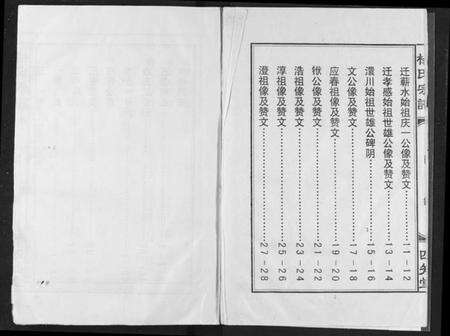 迁蕲水始祖庆一公像及赞文………………11-12
迁孝感始祖世雄公像及赞文………………13-14
澴川始祖世雄公碑阴………………15-16
文公像及赞文………………17-18
应春祖像及赞文………………19-20
公像及赞文………………21-22
浩祖像及赞文………………23-24
淳祖像及赞文………………25-26
澄祖像及赞文………………27-28